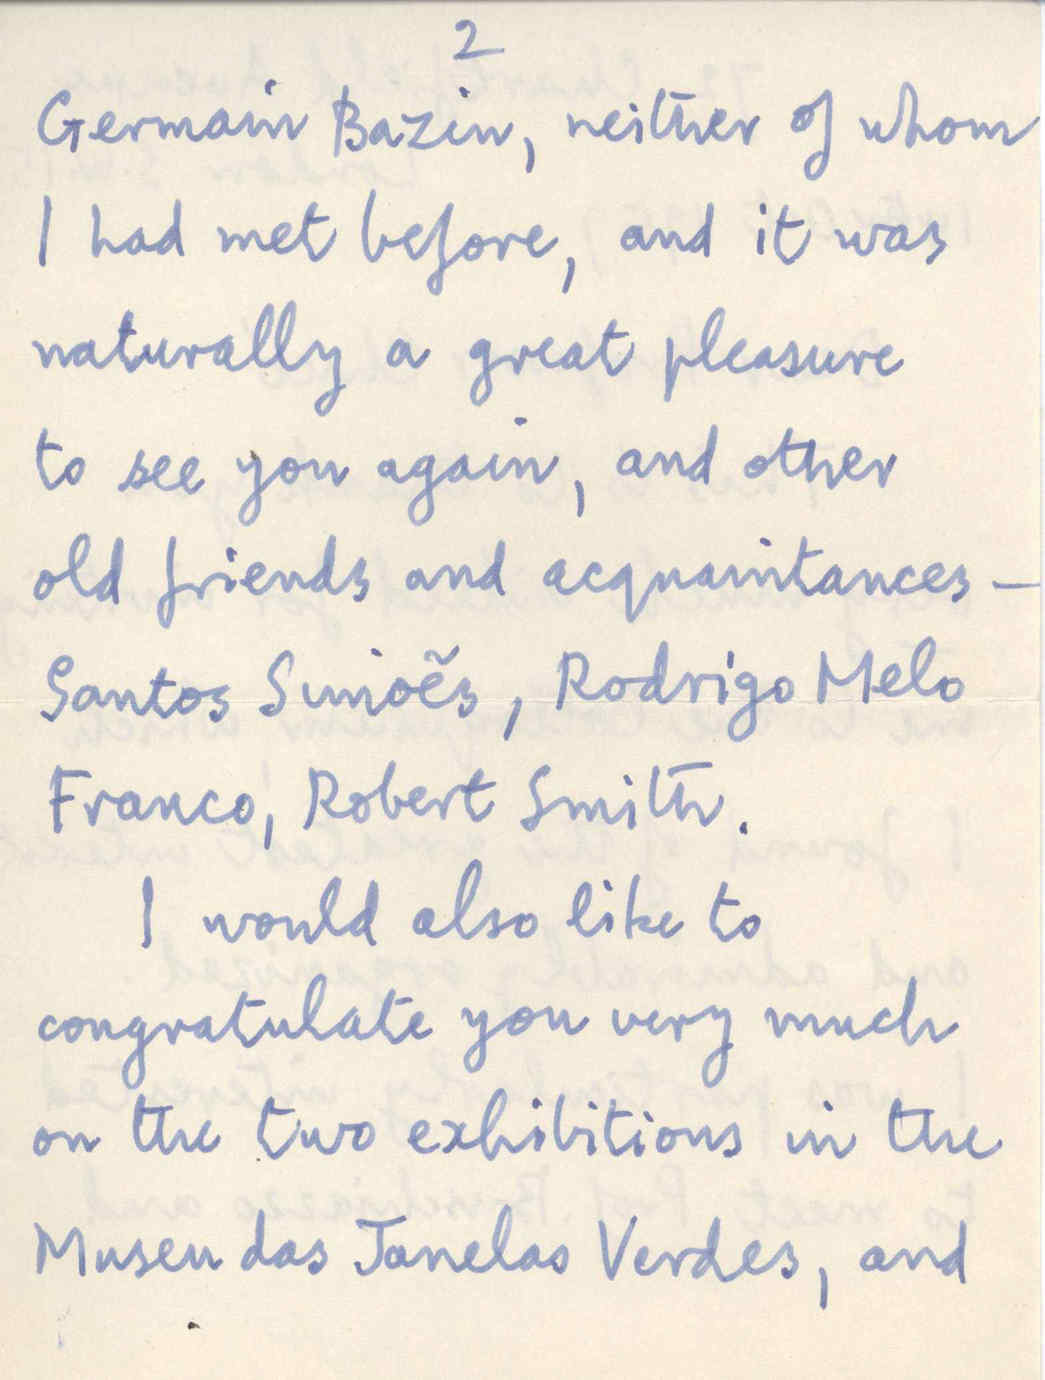 2
Germain Bazin, neither of whom
I had met before, and it was
naturally a great pleasure
to see you again, and other
old friends and acquaintances —
Santos Simoẽs, Rodrigo Melo
Franco, Robert Smith.
I would also like to
congratulate you very much
on the two exhibitions in the
Museu das Janelas Verdes, and